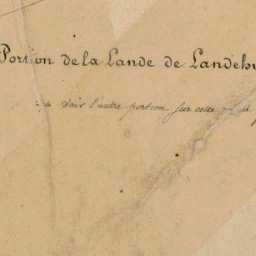 Portion de la Lande de Landeh
Voir l'autre portion sur cette